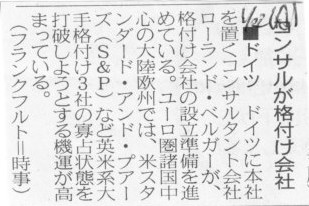 1/22(日)
コンサルが格付け会社
■ドイツ　ドイツに本社
を置くコンサルタント会社
ローランド・ベルガーが、
格付け会社の設立準備を進
めている。ユーロ圏諸国中
心の大陸欧州では、米スタ
ンダード・アンド・プアー
ズ（Ｓ＆Ｐ）など英米系大
手格付け３社の寡占状態を
打破しようとする機運が高
まっている。
（フランクフルト＝時事）